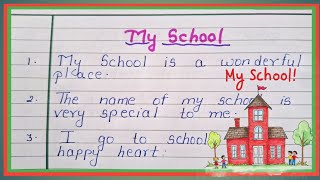 My School
1. My School is a wonderful
place.
My School!
2. The name of my school is
very special to me.
3. I go to school
happy heart.